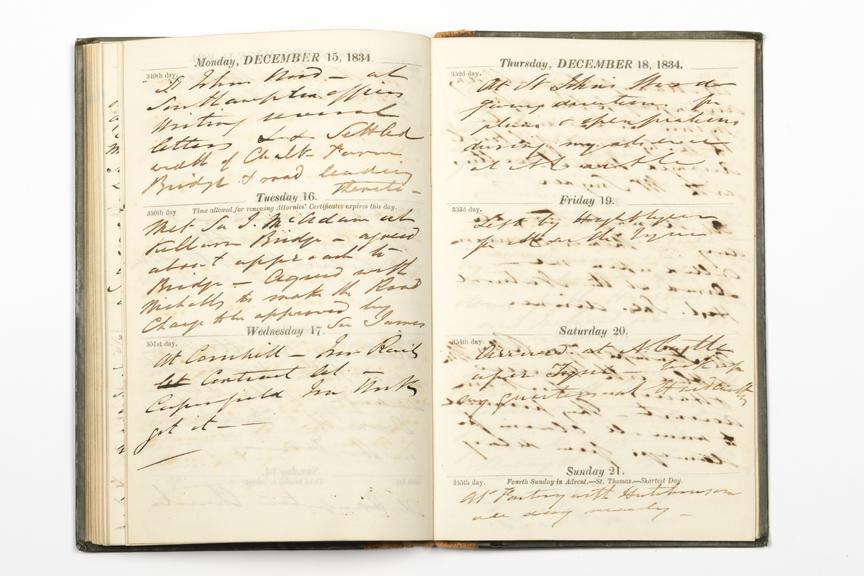 Monday, DECEMBER 15, 1834.
349th day.
St Johns Wood — at
Southampton offices
Writing several
letters && Settled
width of Chalk Farm
Bridge & road leading
thereto —
Tuesday 16.
350th day
Time allowed for renewing Attornies' Certificates expires this day.
Met Sir J. McAdam at
Kilburn Bridge — agreed
about approach to
Bridge — Agreed with
Nicholls to make the Road
Charge to be approved by
Sir James
Wednesday 17.
351st day.
At Cornhill — Iron Rails
Contract at —
get it —
Thursday, DECEMBER 18, 1834.
352d day.
At St Johns Wood
giving directions for
plans & operations
during my absence
at Newcastle
Friday 19.
353d day.
Left by Highflyer
for the Tyne
Saturday 20.
354th day.
Arrived at Newcastle
upon Tyne —
my quarters at
Sunday 21.
355th day.
Fourth Sunday in Advent.—St. Thomas.—Shortest Day.
At with Hutchinson
all day nearly —